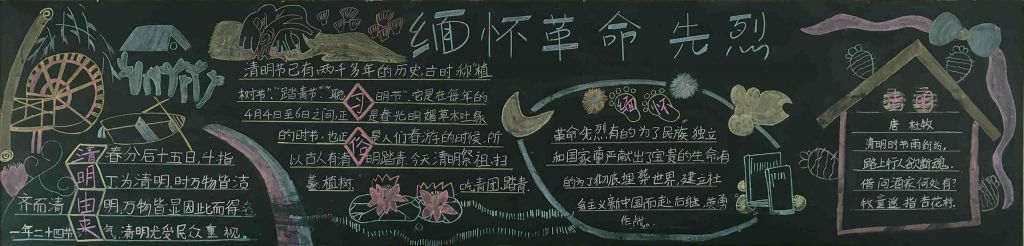 缅怀革命先烈
清明由来
春分后十五日,斗指
丁为清明,时万物皆洁
齐而清明,万物皆显因此而得名
一年二十四节气,清明尤受民众重视。
习俗
清明节已有两千多年的历史,古时称植
树节","踏青节","聪明节",它是在每年的
4月4日至6日之间,正是春光明媚草木吐绿
的时节,也正是人们春游的时候,所
以古人有清明踏青,今天清明祭祖,扫
墓,植树,吃青团,踏青.
缅怀
革命先烈有的为了民族独立
和国家尊严献出了宝贵的生命,有
的为了彻底埋葬世界,建立社
会主义新中国而赴后继,英勇
作战.
清明
唐 杜牧
清明时节雨纷纷,
路上行人欲断魂。
借问酒家何处有?
牧童遥指杏花村.